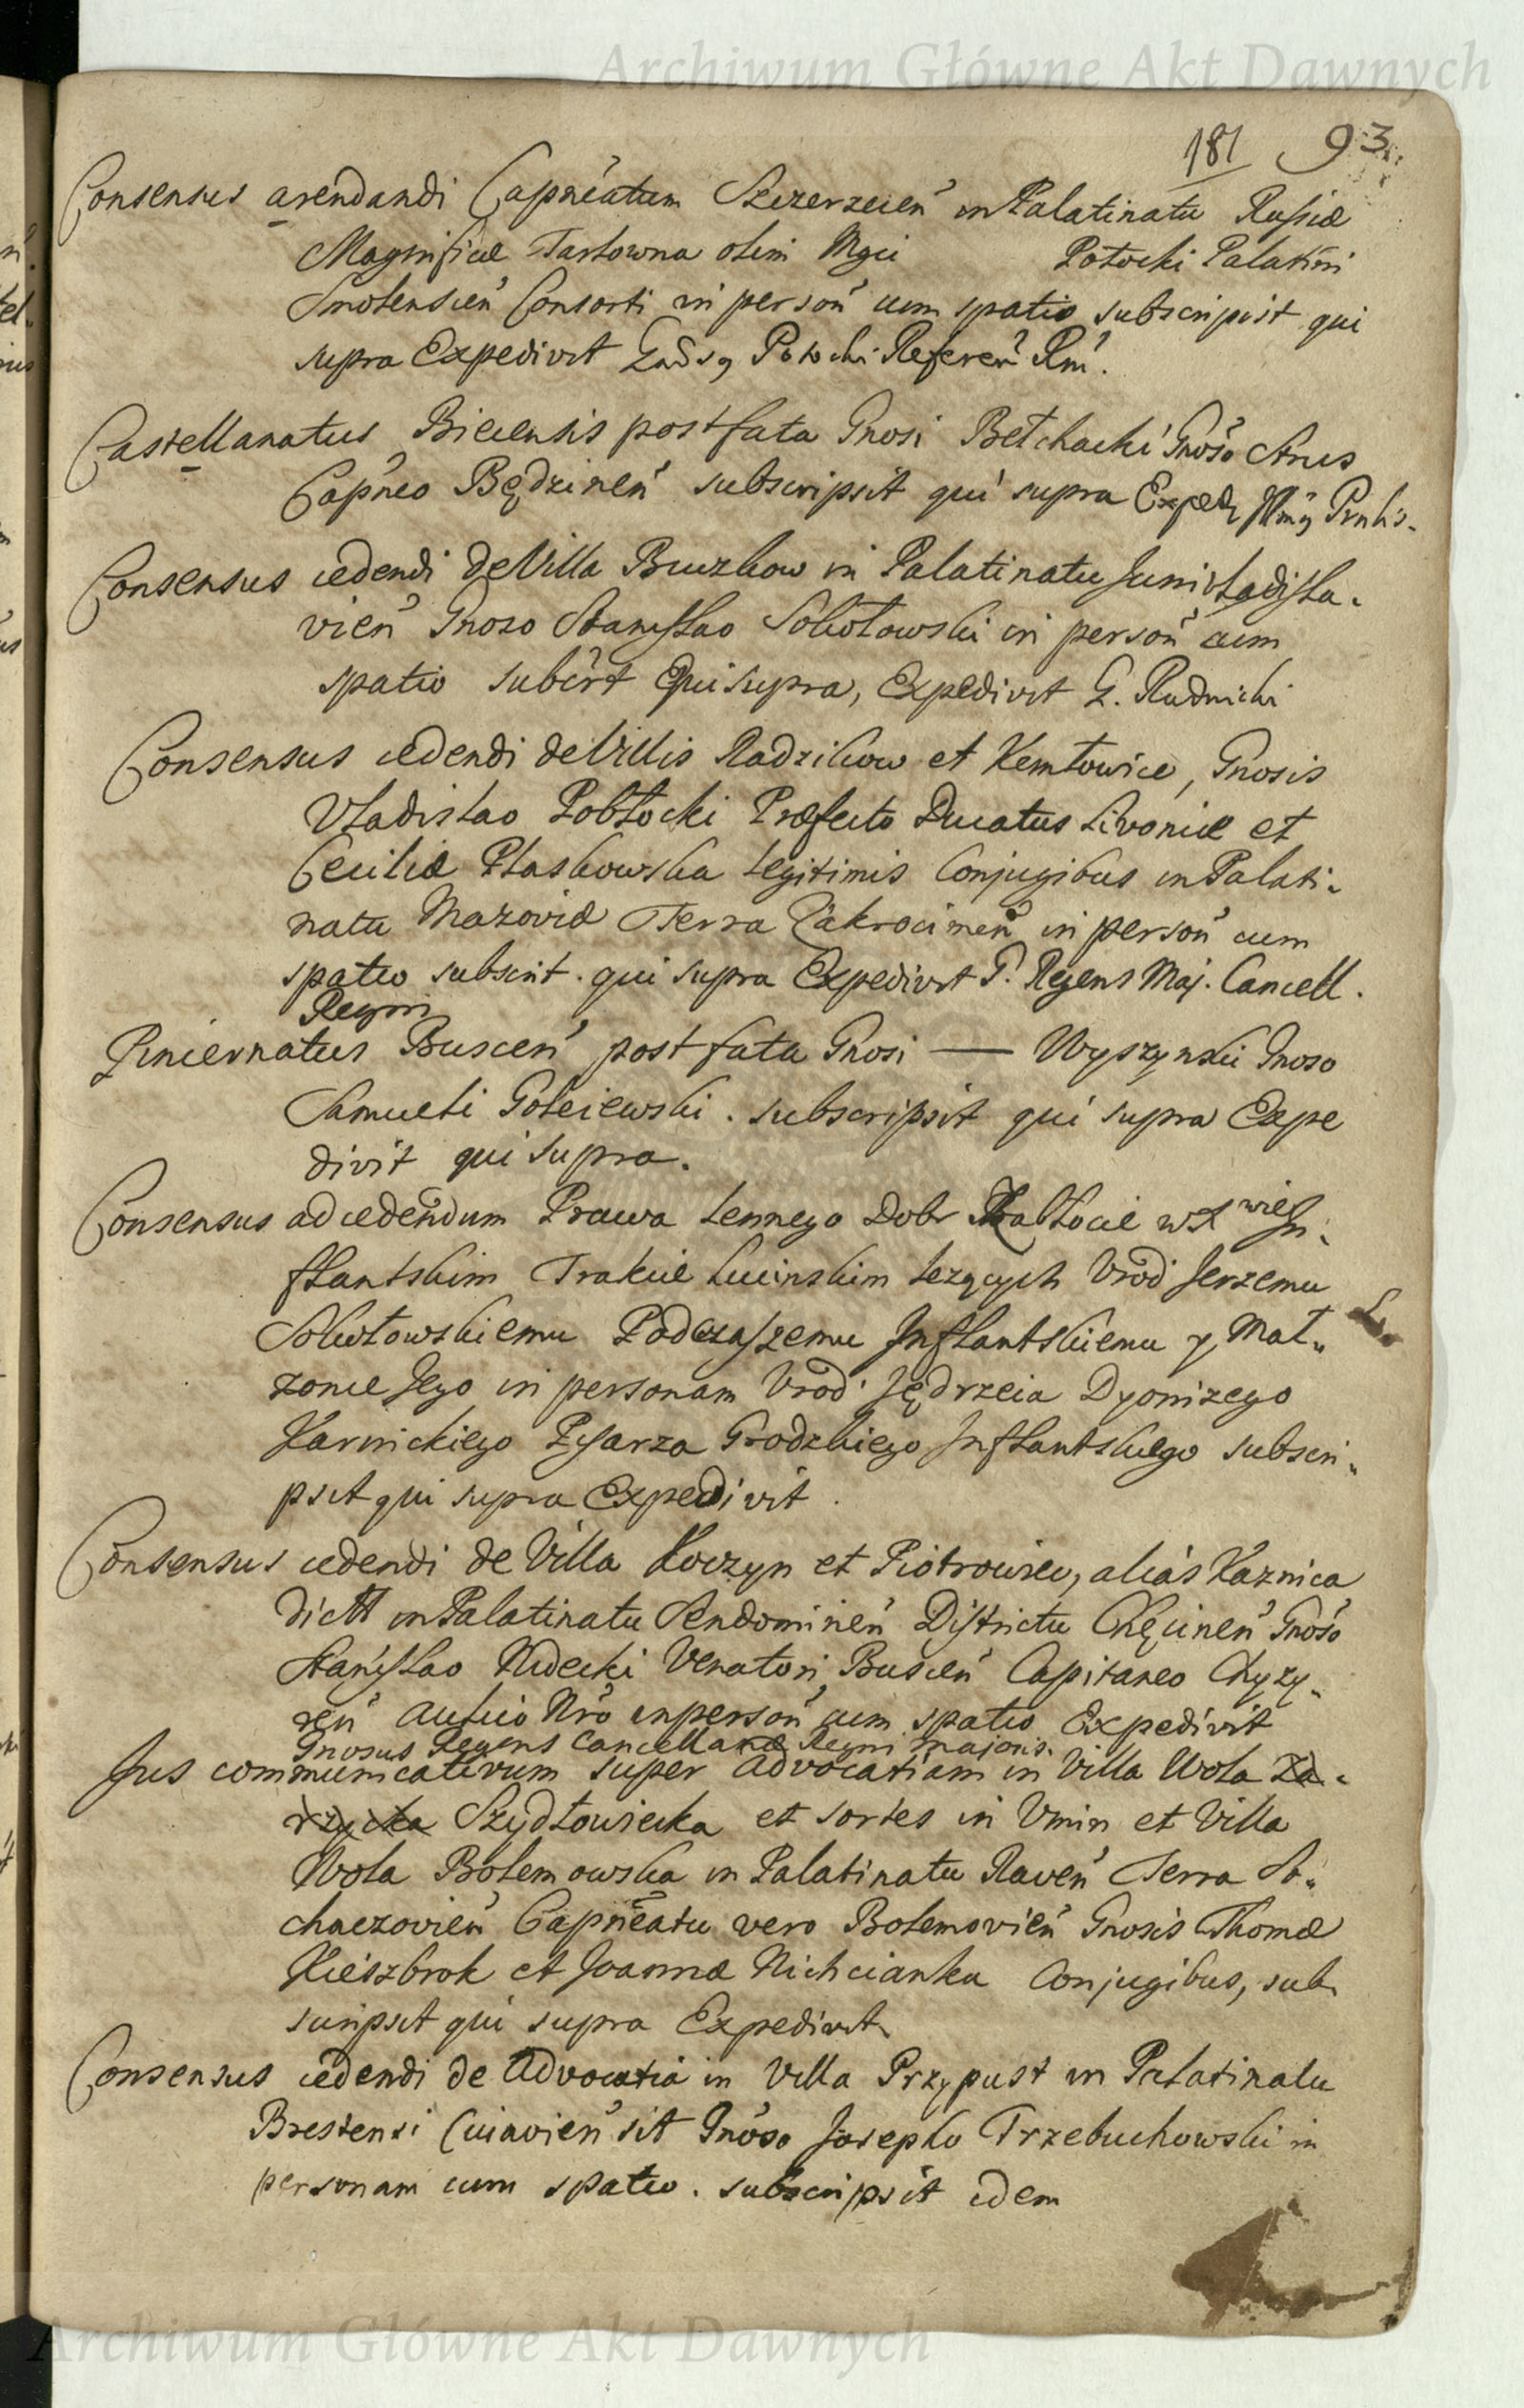 Archiwum Główne Akt Dawnych
181 93
Consensus arendandi Capneatum Szczerzecień in Palatinatu Russiæ
Magnificæ Tarłowna olim Mgci Potocki Palatini
Smolenscień Consorti in person cum spatio subscripsit qui
supra Expedivit Potocki Referen Rni.
Castellanatus Biecensis post fata Gnosi Bełchacki Gnoso
Capneo Będzineń subscripsit qui supra
Consensus cedendi de Villa Buczkow in Palatinatu Junivladisla-
vień Gnoso Stanislao Sokołowski in person cum
spatio subscrt qui supra, Expedivit G. Rudnicki
Consensus cedendi de Villis Radzikow et Kemłowice, Gnosis
Vladislao Pobłocki Præfecto Ducatus Livoniæ et
Ceciliæ Płaskowska legitimis Conjugibus in Palati-
natu Mazoviæ Terra Zakrocimeń in person cum
spatio subscrit. qui supra Expedivit P. Regens Maj. Cancell.
Regni
Pincernatus Busceń post fata Gnosi — Wyszynski Gnoso
Samueli Goleiewski. subscripsit qui supra Expe
divit qui supra.
Consensus ad cedendum Prawa Lennego Dobr w X wie In-
flantskim Trakcie Lucinskim lezących Urod Jerzemu
Sokołowskiemu Podczaszemu Inflantskiemu y Mał-
zonce Jego in personam Urod. Jędrzeia Dyonizego
Karnickiego Pisarza Grodzkiego Inflantskiego subscri-
psit qui supra Expedivit.
Consensus cedendi de Villa Koczyn et Piotrowiec, alias Kaznica
dictt in Palatinatu Sendomirień Districtu Chęcineń Gnoso
Stanislao Nidecki Venatori Busceń Capitaneo Chyzy-
neń Aulico Nro in person cum spatio Expedivit
Gnosus Regens Cancellariæ Regni Majoris.
Jus communicativum super Advocatiam in Villa Wola Za-
rzycka Szydłowiecka et sortes in Vmin et Villa
Wola Bolemowska in Palatinatu Raveń Terra So-
chaczovień Capneatu vero Bolemovień Gnosis Thomæ
Kieszbrok et Joannæ Nichcianka Conjugibus, sub-
scripsit qui supra Expedivit.
Consensus cedendi de Advocatia in Villa Przypust in Palatinatu
Brestensi Cuiavień sit Gnoso Josepho Trzebuchowski in
personam cum spatio. subscripsit idem
Archiwum Główne Akt Dawnych